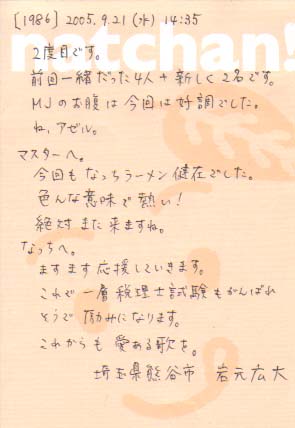 [1986] 2005.9.21 (水) 14:35
natchan!
2度目です。
前回一緒だった4人+新しく2名です。
MJのお腹は今回は好調でした。
ね、アゼル。
マスターへ。
今回もなっちラーメン健在でした。
色んな意味で熱い!
絶対また来ますね。
なっちへ。
ますます応援していきます。
これで一層税理士試験もがんばれ
そうで励みになります。
これからも愛ある歌を。
埼玉県熊谷市 岩元広大